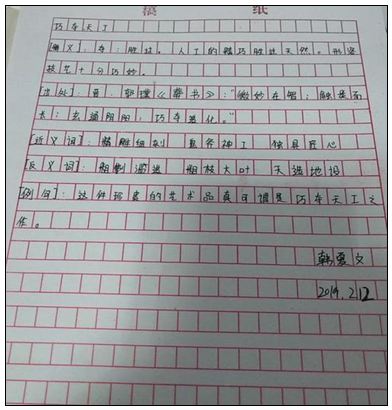 稿 纸
巧夺天工
[释义]：夺：胜过。人工的精巧胜过天然。形容
技艺十分巧妙。
[出处]：晋·郭璞《葬书》："微妙在智，触类而
长；玄通阴阳，巧夺造化。"
[近义词]：精雕细刻 鬼斧神工 独具匠心
[反义词]：粗制滥造 粗枝大叶 天造地设
[例句]：这件珍贵的艺术品真可谓是巧夺天工之
作。
韩 文
2019.2.12